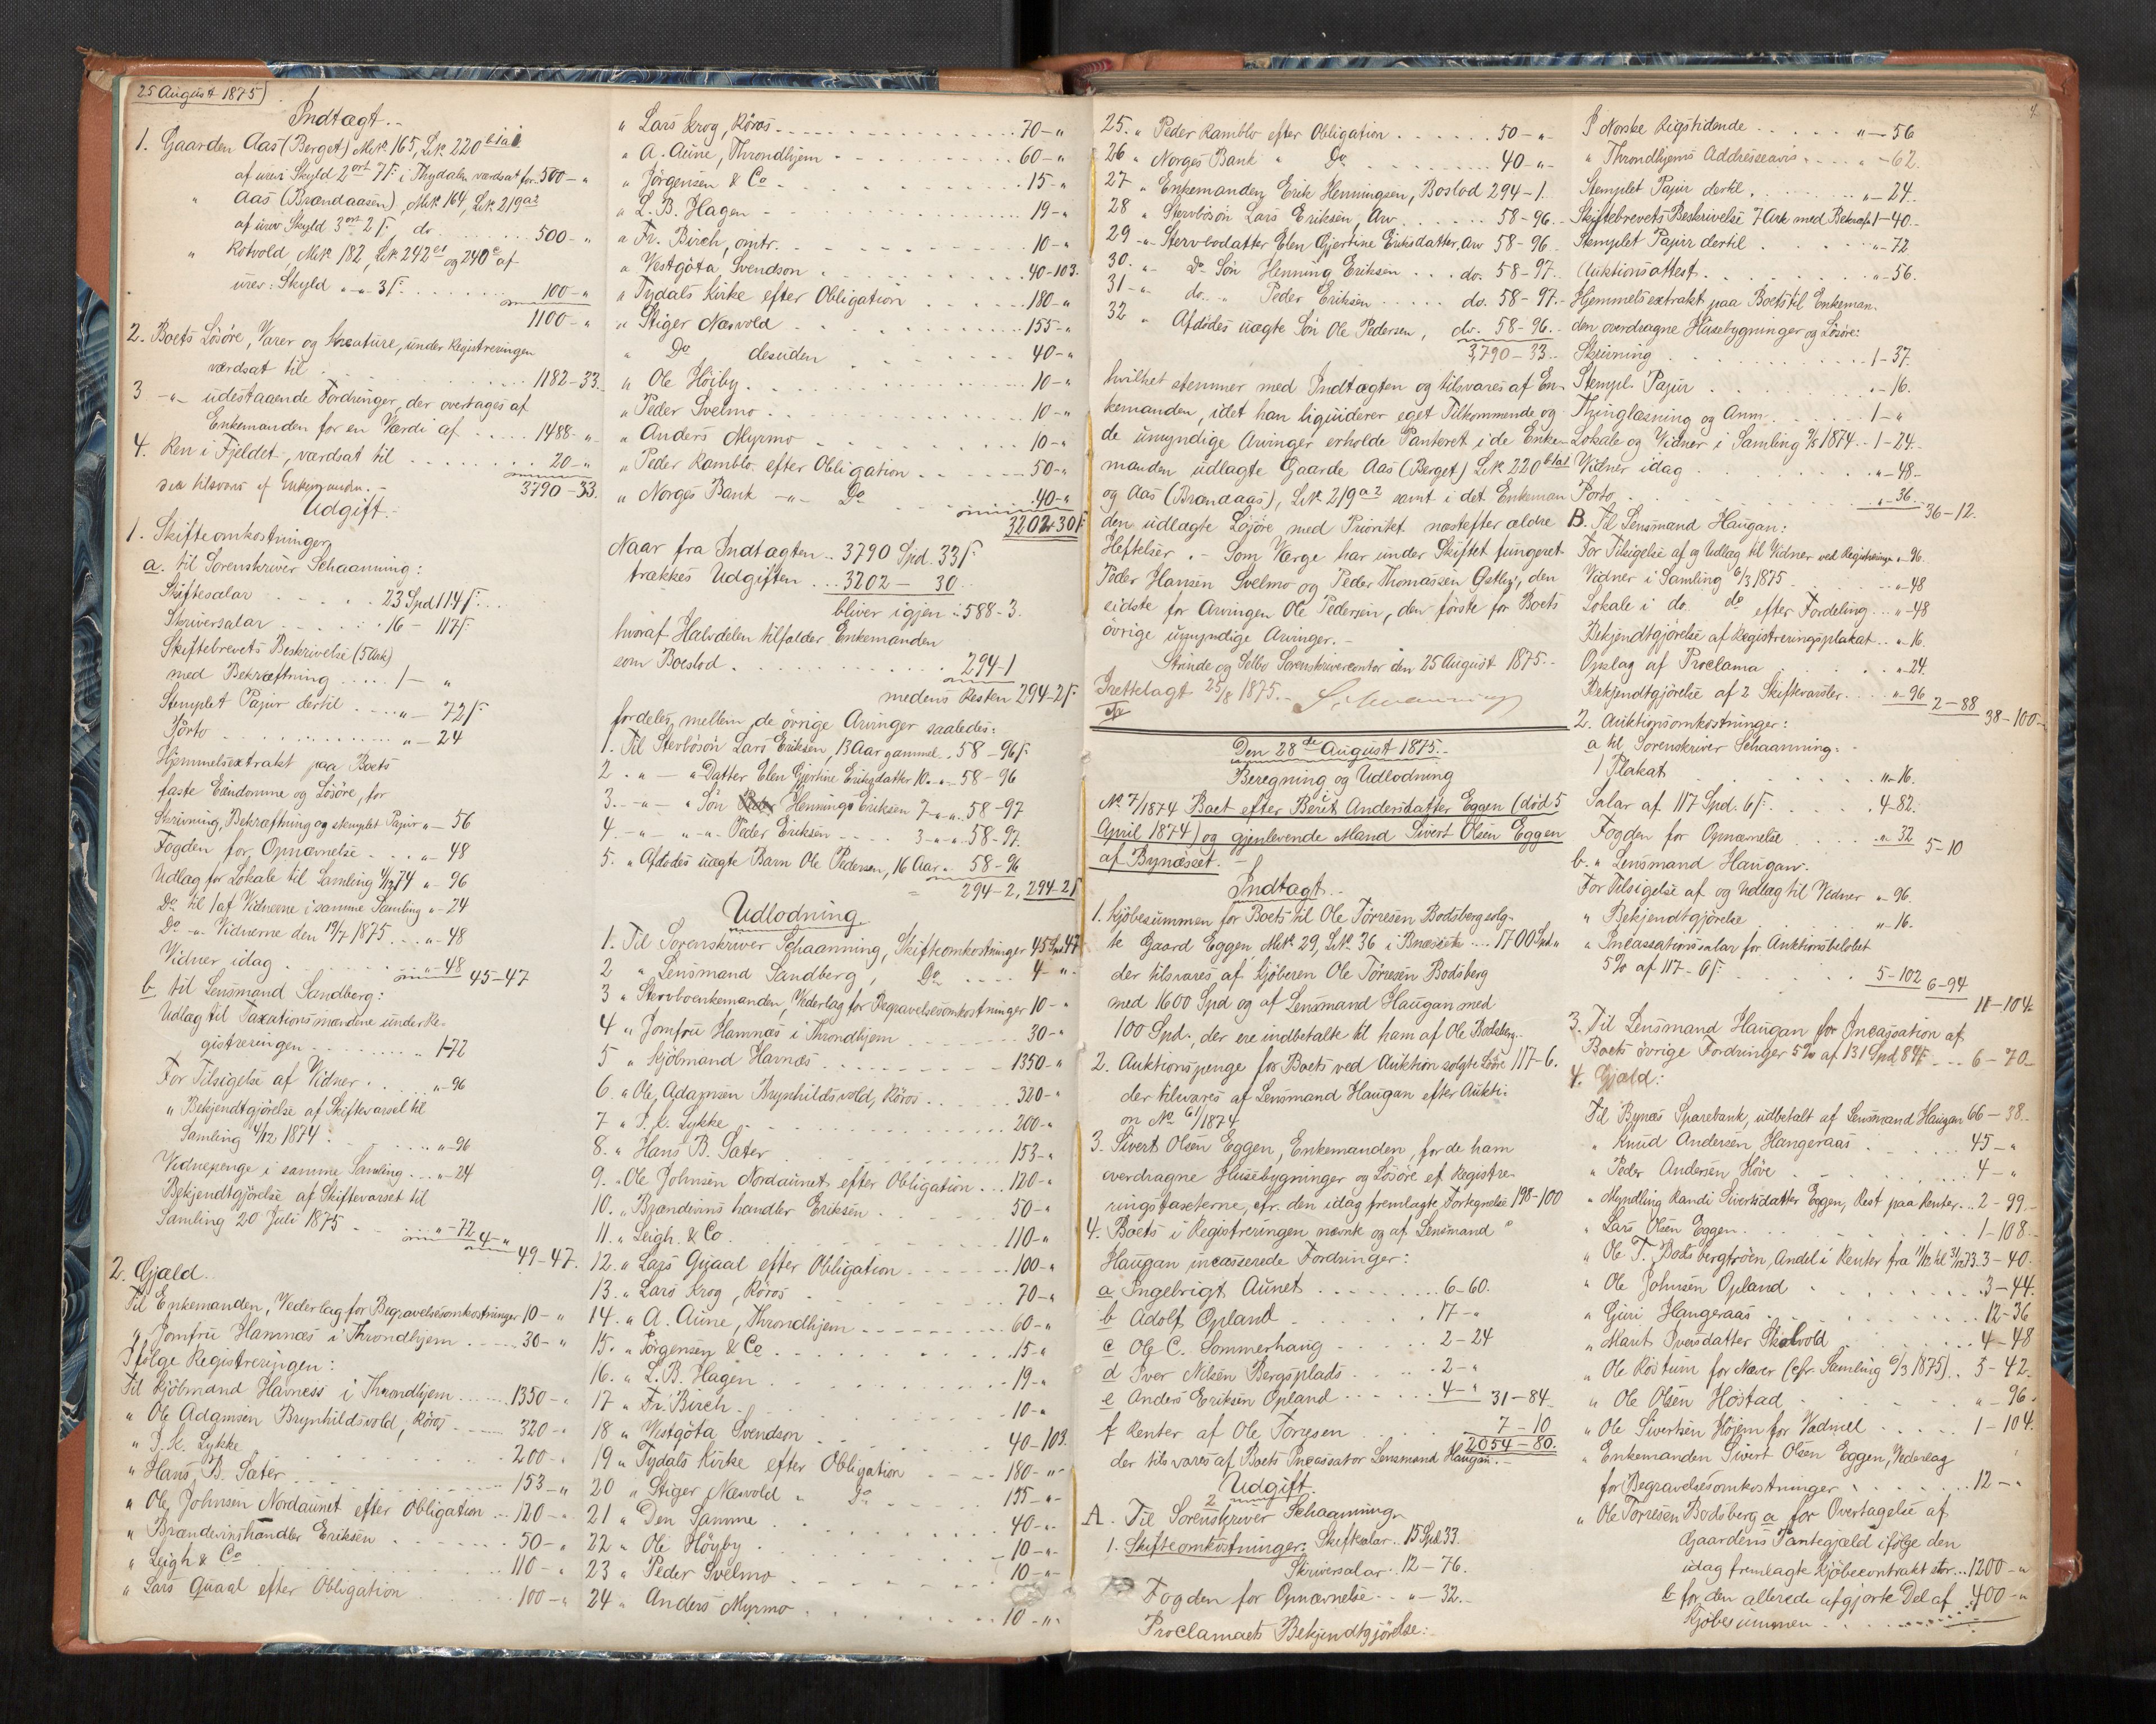 25 August 1875)
Indtægt.-
1. Gaarden Aas (Berget) Mk. 165, Lk. 220 b1a1
af urev: Skyld 2 ort 7 ſ: i Thydalen værdsat for. 500 - "
" Aas (Brændaasen), Mk. 164, Lk. 219 a2
af urev Skyld 3 ort 2 ſ:, do ........ 500 - "
" Kotvold Mk. 182, Lk. 242 og 240 af
urev: Skyld "-"- 3 ſ: ........ 100 - "
1100 - "
2. Boets Lösöre, Varer og Kreature, under Registreringen
værdsat til ........ 1182 - 33.
3 -"- udestaaende Fordringer, der overtages af
Enkemanden for en Værdi af ..... 1488 - "
4. Ren i Fjeldet, værdsat til ........ 20 - "
der tilsvares af Enkemanden.- 3790 - 33.
Udgift.-
1. Skifteomkostninger
a. til Sorenskriver Schaanning:
Skiftesalar ..... 23 Spd 114 ſ:
Skriversalar ..... 16 - 117 ſ:
Skiftebrevets Beskrivelse (5 Ark)
med Bekræftning ..... 1 - "
Stemplet Papiir dertil ..... " - 72 ſ:
Porto ........ " - 24
Hjemmelsextrakt paa Boets
faste Eiendomme og Lösöre, for
Skrivning, Bekræftning og stemplet Papiir " - 56
Fogden for Opnævnelse ... " - 48
Udlæg for Lokale til Samling 4/12 74 " - 96
Do til 1 af Vidnerne i samme Samling " - 24
Do -"- Vidnerne den 19/7 1875 ... " - 48
Vidner idag ........ " - 48 45 - 47
b til Lensmand Sandberg:
Udlæg til Taxationsmændene under Re-
gistreringen ........ 1 - 72
For Tilsigelse af Vidner .... " - 96
" Bekjendtgjörelse af Skiftevarsel til
Samling 4/12 1874 ........ " - 96
Vidnepenge i samme Samling ... " - 24
Bekjendtgjörelse af Skiftevarsel til
Samling 20 Juli 1875 ..... " - 72 4 - "
49 - 47.
2. Gjæld.
Til Enkemanden, Vederlag for Begravelsesomkostninger 10 - "
" Jomfru Hamnæs i Throndhjem ..... 30 - "
Ifölge Registreringen:
Til Kjöbmand Havness i Throndhjem ..... 1350 - "
" Ole Adamsen Brynhildsvold, Röros ..... 320 - "
" P. K. Lykke ........ 200 - "
" Hans B. Sæter ........ 153 - "
" Ole Johnsen Nordaunet efter Obligation ... 120 - "
" Brændevinshandler Eriksen ..... 50 - "
" Leigh & Co ........ 110 - "
" Lars Qvaal efter Obligation ..... 100 - "
" Lars Krog, Röros ........ 70 - "
" A. Aune, Throndhjem ........ 60 - "
" Jörgensen & Co ........ 15 - "
" L. B. Hagen ........ 19 - "
" Fr. Birch, omtr. ........ 10 - "
" Vestgöta Svendson ........ 40 - 103.
" Tydals Kirke efter Obligation ..... 180 - "
" Stiger Næsvold ........ 155 - "
" Do desuden ........ 40 - "
" Ole Höiby ........ 10 - "
" Peder Svelmo ........ 10 - "
" Anders Myrmo ........ 10 - "
" Peder Kamblo efter Obligation ..... 50 - "
" Norges Bank -"- Do ..... 40 - "
3202 - 30 ſ:
Naar fra Indtægten .. 3790 Spd. 33 ſ:
trækkes Udgiften ... 3202 - 30.
bliver igjen : 588 - 3.
hvoraf Halvdelen tilfalder Enkemanden
som Boeslod ........ 294 - 1
medens Resten 294 - 2 ſ:
fordeles mellem de övrige Arvinger saaledes:
1. Til Stervbösön Lars Eriksen, 13 Aar gammel .. 58 - 96 ſ:
2. " - " Datter Elen Gjertine Eriksdatter 10 "-"- 58 - 96
3. -"- " Sön Henning Eriksen 7 -"-" . 58 - 97
4. -"- "-"- Peder Eriksen ..... 3 -"-" 58 - 97.
5. " Afdödes uægte Barn Ole Pedersen, 16 Aar . 58 - 96
294 - 2, 294 - 2 ſ
Udlodning
1. Til Sorenskriver Schaanning, Skifteomkostninger 45 Spd 47
2 " Lensmand Sandberg, Do .... 4 - "
3 " Stervboenkemanden, Vederlag for Begravelsesomkostninger 10 - "
4 " Jomfru Hamnæs i Throndhjem ..... 30 - "
5 " Kjöbmand Havnæs ........ 1350 - "
6. " Ole Adamsen Brynhildsvold, Röros ..... 320 - "
7 " P. K. Lykke ........ 200 - "
8. " Hans B. Sæter ........ 153 - "
9. " Ole Johnsen Nordaunet efter Obligation ... 120 - "
10. " Brændevins handler Eriksen ..... 50 - "
11. " Leigh & Co. ........ 110 - "
12. " Lars Qvaal efter Obligation ..... 100 - "
13. " Lars Krog, Röros ........ 70 - "
14. " A. Aune, Throndhjem ........ 60 - "
15. " Jörgensen & Co ........ 15 - "
16. " L. B. Hagen ........ 19 - "
17 " Fr. Birch ........ 10 - "
18 " Vestgöta Svendson ........ 40 - 103.
19 " Tydals Kirke efter Obligation ..... 180 - "
20 " Stiger Næsvold " Do ..... 155 - "
21 " Den Samme ........ 40 - "
22 " Ole Höyby ........ 10 - "
23 " Peder Svelmo ........ 10 - "
24 " Anders Myrmo ........ 10 - "
25. " Peder Kamblo efter Obligation ..... 50 - "
26 " Norges Bank " Do ..... 40 - "
27 - " Enkemanden Erik Henningsen, Boslod 294 - 1.
28 " Stervbösön Lars Eriksen, Arv ..... 58 - 96.
29 - " Stervbodatter Elen Gjertine Eriksdatter, Arv 58 - 96.
30. " Do Sön Henning Eriksen ... do. 58 - 97.
31 - " do. " Peder Eriksen ..... do. 58 - 97.
32 " Afdödes uægte Sön Ole Pedersen, do. 58 - 96.
3790 - 33.
hvilket stemmer med Indtægten og tilsvares af En-
kemanden, idet han liquiderer eget Tilkommende og
de umyndige Arvinger erholde Panteret i de Enke-
manden udlagte Gaarde Aas (Berget) Lk. 220 b1a1
og Aas (Brændaas), Lk. 219 a2 samt i det Enkeman
den udlagte Lösöre med Prioritet næstefter ældre
Heftelser. - Som Værge har under Skiftet fungeret
Peder Hansen Svelmo og Peder Thomassen Østby, den
sidste for Arvingen Ole Pedersen, den förste for Boets
övrige umyndige Arvinger.-
Strinde og Selbo Sorenskrivercontor den 25 August 1875.-
Irettelagt 25/8 1875.- Schaanning
Den 28de August 1875.-
Beregning og Udlodning
i
No 7/1874 Boet efter Berit Andersdatter Eggen (död 5
April 1874) og gjenlevende Mand Sivert Olsen Eggen
af Bynæsset.-
Indtægt.-
1. Kjöbesummen for Boets til Ole Törresen Bodsberg solg-
te Gaard Eggen, Mk. 29, Lk. 36 i Bynæsset .... 1700 Spd "
der tilsvares af Kjöberen Ole Törresen Bodsberg
med 1600 Spd og af Lensmand Haugan med
100 Spd., der ere indbetalte til ham af Ole Bodsberg.
2. Auktionspenge for Boets ved Auktion solgte Lösöre 117 - 6.
der tilsvares af Lensmand Haugan efter Aukti-
on No 61/1874
3. Sivert Olsen Eggen, Enkemanden, for de ham
overdragne Husebygninger og Lösöre ef. Registre-
ringstaxterne, cfr. den idag fremlagte Fortegnelse 198 - 100
4. Boets i Registreringen nævnte og af Lensmand
Haugan incasserede Fordringer:
a Ingebrigt Aunet ........ 6 - 60.
b Adolf Opland ........ 17 - "
c Ole C. Sommerhaug ..... 2 - 24
d Iver Nilsen Bergsplads .... 2 - "
e Anders Eriksen Opland ..... 4 - " 31 - 84
f Renter af Ole Törresen ..... 7 - 10
2054 - 80.
der tilsvares af Boets Incassator Lensmand Haugan.-
Udgift.
A. Til Sorenskriver Schaanning
1. Skifteomkostninger: Skiftesalar .. 15 Spd 33.
Skriversalar .. 12 - 76.
Fogden for Opnævnelse .. " - 32.-
Proclamaets Bekjendtgjörelse:-
4.
I Norske Rigstidende ..... " - 56
" Throndhjems Addresseavis .... " - 62.
Stemplet Papiir dertil ........ " - 24.
Skiftebrevets Beskrivelse 7 Ark med Bekræft. 1 - 40.
Stemplet Papiir dertil ..... " - 72
Auktionsattest ........ " - 56.
Hjemmelsextrakt paa Boets til Enkeman-
den overdragne Husebygninger og Lösöre:
Skrivning ........ 1 - 37.
Stempl. Papiir ........ " - 16.
Thinglæsning og Anm. .... 1 - "
Lokale og Vidner i Samling 1874 .. 1 - 24.
Vidner idag ........ " - 48.
Porto ........ " - 36. 36 - 12.
B. Til Lensmand Haugan:
For Tilsigelse af og Udlæg til Vidner ved Registrering " - 96.
Vidner i Samling 6/3 1875 ..... " - 48
Lokale i do. do efter Fordeling ... " - 48
Bekjendtgjörelse af Registreringsplakat .. " - 16.
Opslag af Proclama ........ " - 24.
Bekjendtgjörelse af 2 Skiftevarsler ... " - 96 2 - 88
38 - 100 -
2. Auktionsomkostninger:
a til Sorenskriver Schaanning:
1 Plakat ........ " - 16.
Salar af 117 Spd. 6 ſ: ..... 4 - 82.
Fogden for Opnævnelse ..... " 32 5 - 10
b. " Lensmand Haugan.
For Tilsigelse af og Udlæg til Vidner " - 96.
" Bekjendtgjörelse ..... " - 16.
" Incassationssalar for Auktionsbelöbet
5% af 117 - 6 ſ: ..... 5 - 102 6 - 94
11 - 104.
3. Til Lensmand Haugan for Incassation af
Boets övrige Fordringer 5% af 131 Spd 84 ſ: ... 6 - 70 -
4. Gjæld:
Til Bynæs Sparebank, udbetalt af Lensmand Haugan 66 - 38.
" Knud Andersen Hangeraas ..... 45 - "
" Peder Andersen Höve ........ 4 - "
" Myndling Randi Sivertsdatter Eggen, Rest paa Renter .. 2 - 99.
" Lars Olsen Eggen ........ 1 - 108
" Ole T. Bodsbergtrøen, Andel i Renter fra til 73. 3 - 40.
" Ole Johnsen Opland ........ 3 - 44.
" Guri Hangeraas ........ 12 - 36
" Marit Iversdatter Skolvold ..... 4 - 48
" Ole Röstum for Næver (cfr. Samling 6/3 1875) .. 3 - 42.
" Ole Olsen Höstad ........ " - 96.
" Ole Sivertsen Höjem for Vadmel ..... 1 - 104.
" Enkemanden Sivert Olsen Eggen, Vederlag
for Begravelsesomkostninger ..... 12 - "
" Ole Törresen Bodsberg a for Overtagelse af
Gaardens Pantegjæld ifölge den
idag fremlagte Kjöbecontrakt stor ... 1200 - "
b for den allerede afgjorte Del af 400 - "
Kjöbesummen ........